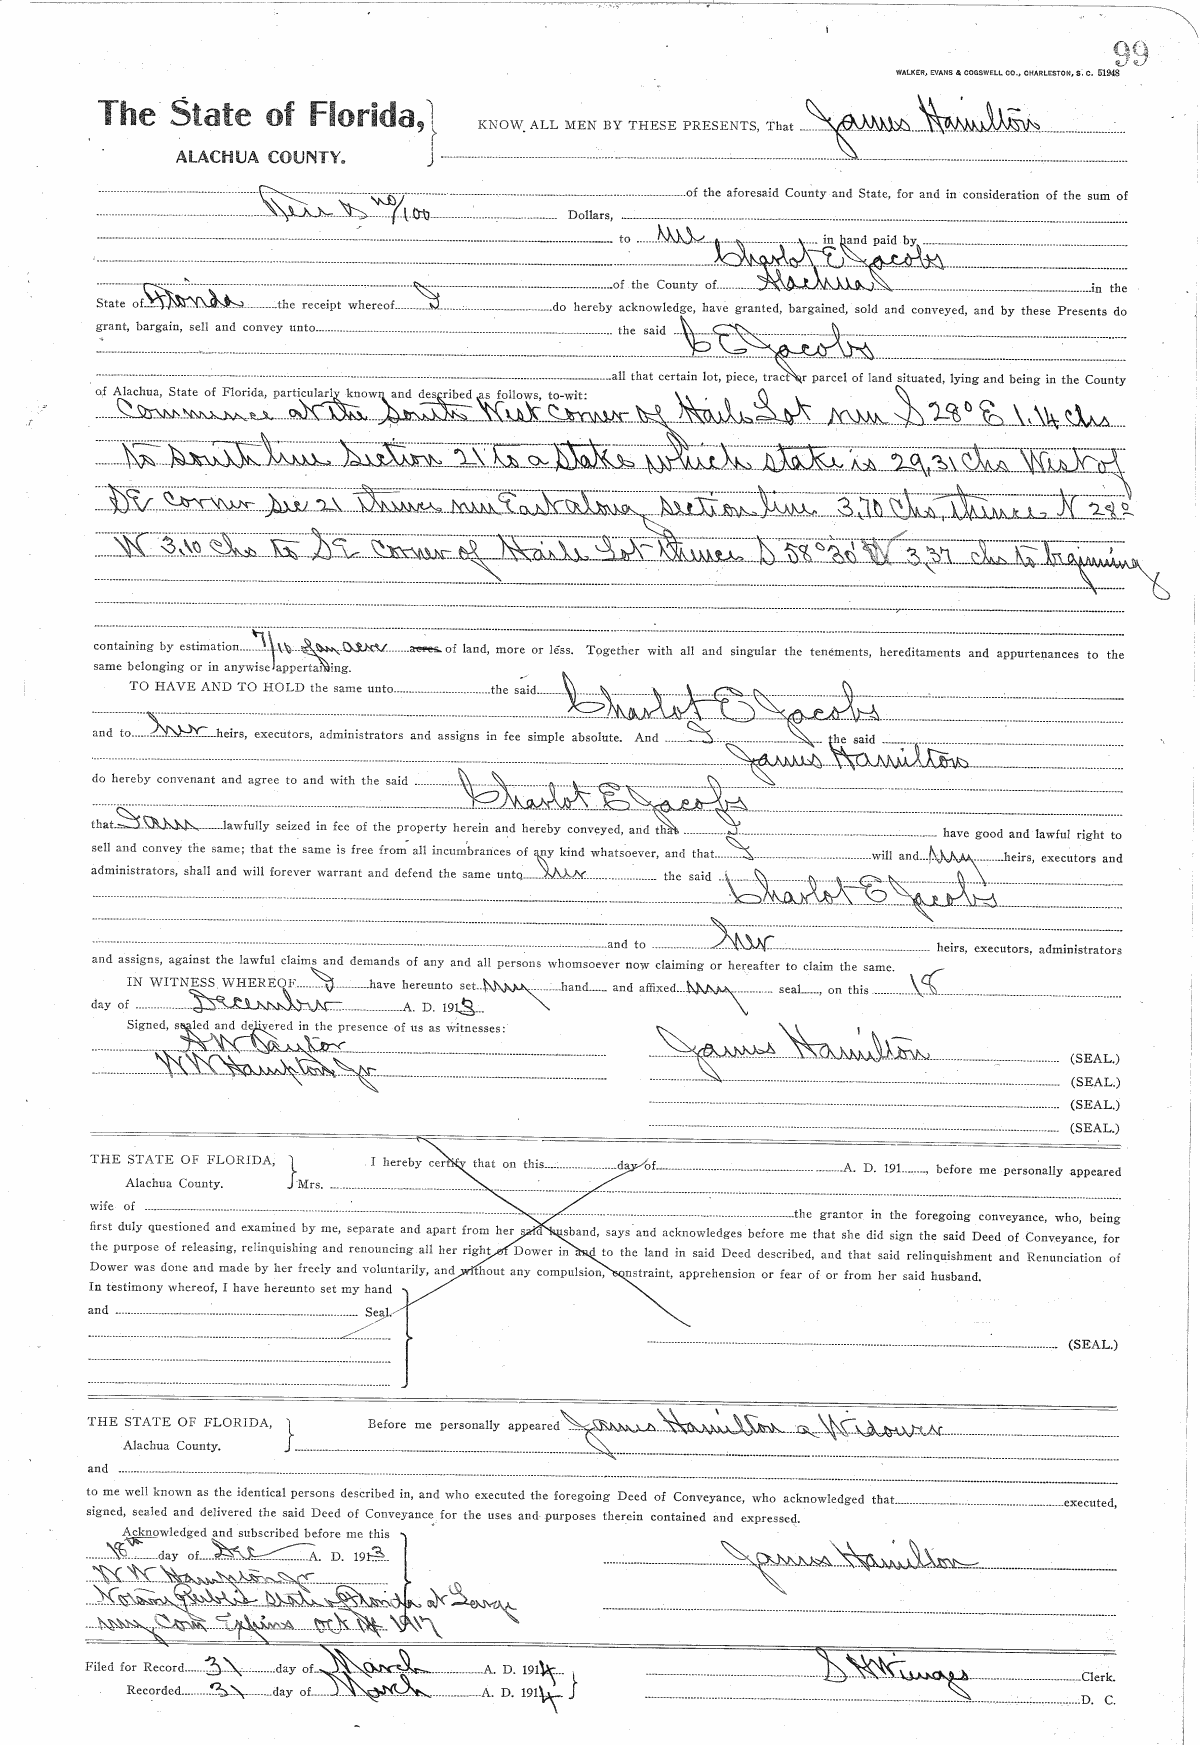 99
WALKER, EVANS & COGSWELL CO., CHARLESTON, S. C. 51948
The State of Florida,
ALACHUA COUNTY.
KNOW ALL MEN BY THESE PRESENTS, That James Hamilton
of the aforesaid County and State, for and in consideration of the sum of
no/100 Dollars,
to me in hand paid by
Charlot E Jacobs
of the County of Alachua in the
State of Florida the receipt whereof I do hereby acknowledge, have granted, bargained, sold and conveyed, and by these Presents do
grant, bargain, sell and convey unto the said C E Jacobs
all that certain lot, piece, tract or parcel of land situated, lying and being in the County
of Alachua, State of Florida, particularly known and described as follows, to-wit:
Commence at the South West Corner of Haile Lot run S 28° E 1.14 chs
to South line Section 21 to a stake which stake is 29,31 Chs West of
SE corner Sec 21 thence run East along section line 3,70 Chs, thence N 28°
W 3.10 chs to SE corner of Haile Lot thence S 58°30' W 3,37 chs to beginning
containing by estimation 7/10 of an acre acres of land, more or less. Together with all and singular the tenements, hereditaments and appurtenances to the
same belonging or in anywise appertaining.
TO HAVE AND TO HOLD the same unto the said Charlot E Jacobs
and to her heirs, executors, administrators and assigns in fee simple absolute. And I the said
James Hamilton
do hereby convenant and agree to and with the said Charlot E Jacobs
that I am lawfully seized in fee of the property herein and hereby conveyed, and that I have good and lawful right to
sell and convey the same; that the same is free from all incumbrances of any kind whatsoever, and that I will and my heirs, executors and
administrators, shall and will forever warrant and defend the same unto her the said Charlot E Jacobs
and to her heirs, executors, administrators
and assigns, against the lawful claims and demands of any and all persons whomsoever now claiming or hereafter to claim the same.
IN WITNESS WHEREOF I have hereunto set my hand and affixed my seal, on this 18
day of December A. D. 1913
Signed, sealed and delivered in the presence of us as witnesses:
W W Hampton Jr
James Hamilton (SEAL.)
(SEAL.)
(SEAL.)
(SEAL.)
THE STATE OF FLORIDA,
Alachua County.
I hereby certify that on this day of A. D. 191, before me personally appeared
Mrs.
wife of the grantor in the foregoing conveyance, who, being
first duly questioned and examined by me, separate and apart from her said husband, says and acknowledges before me that she did sign the said Deed of Conveyance, for
the purpose of releasing, relinquishing and renouncing all her right of Dower in and to the land in said Deed described, and that said relinquishment and Renunciation of
Dower was done and made by her freely and voluntarily, and without any compulsion, constraint, apprehension or fear of or from her said husband.
In testimony whereof, I have hereunto set my hand
and Seal.
(SEAL.)
THE STATE OF FLORIDA,
Alachua County.
Before me personally appeared James Hamilton a Widower
and
to me well known as the identical persons described in, and who executed the foregoing Deed of Conveyance, who acknowledged that executed,
signed, sealed and delivered the said Deed of Conveyance for the uses and purposes therein contained and expressed.
Acknowledged and subscribed before me this
18th day of Dec A. D. 1913
W W Hampton Jr
Notary Public State of Florida at Large
my Com Expires Oct 14 1917
James Hamilton
Filed for Record 31 day of March A. D. 1914
Recorded 31 day of March A. D. 1914
S H Wienges Clerk.
D. C.